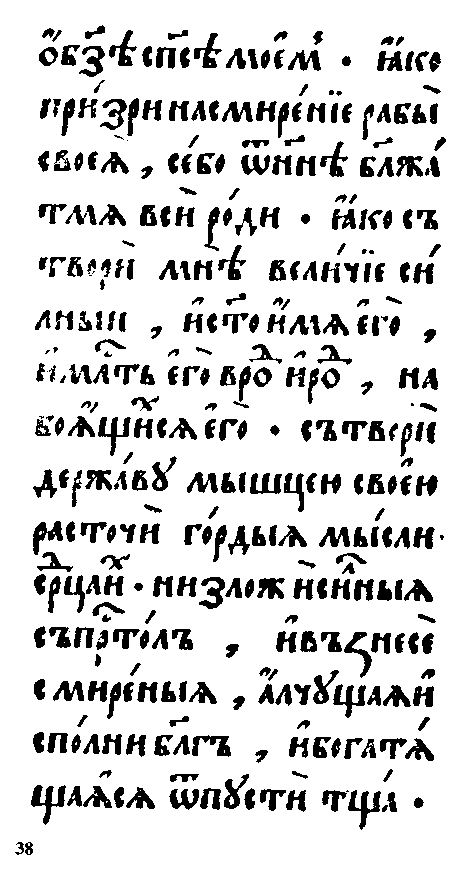 о҆бз҃ѣ сп҃сѣ мое҆м̾ · ꙗ҆́ко
при́зри на смире́нїе рабы̀
своеѧ̀ , се́ бо ѿн҃нѣ бл҃жа́
тмѧ всѝ ро́ди · ꙗ҆́ко съ
твори̑ мн̑ѣ вели́чїе си́
лныи , и҆ ст҃о и҆́мѧ е҆го̀ ,
и҆ млⷭ҇ть е҆го̀ в роⷣ и҆ роⷣ , на
боѧ҆́щиⷯсѧ е҆го̀ · сътвори̑
держа́ву мышцею свое́ю
расточѝ го́рдыѧ мы́сли·
срⷣцаиⷯ · низложѝ си́лⸯныѧ
съ прⷭ҇то́лъ , и҆ въꙁнесѐ
смире́ныѧ , а҆́лчꙋщаѧ и҆
спо́лни бл҃гъ , и҆ богатѧ́
щаѧ҆сѧ ѿпꙋстѝ тща́ ·
38